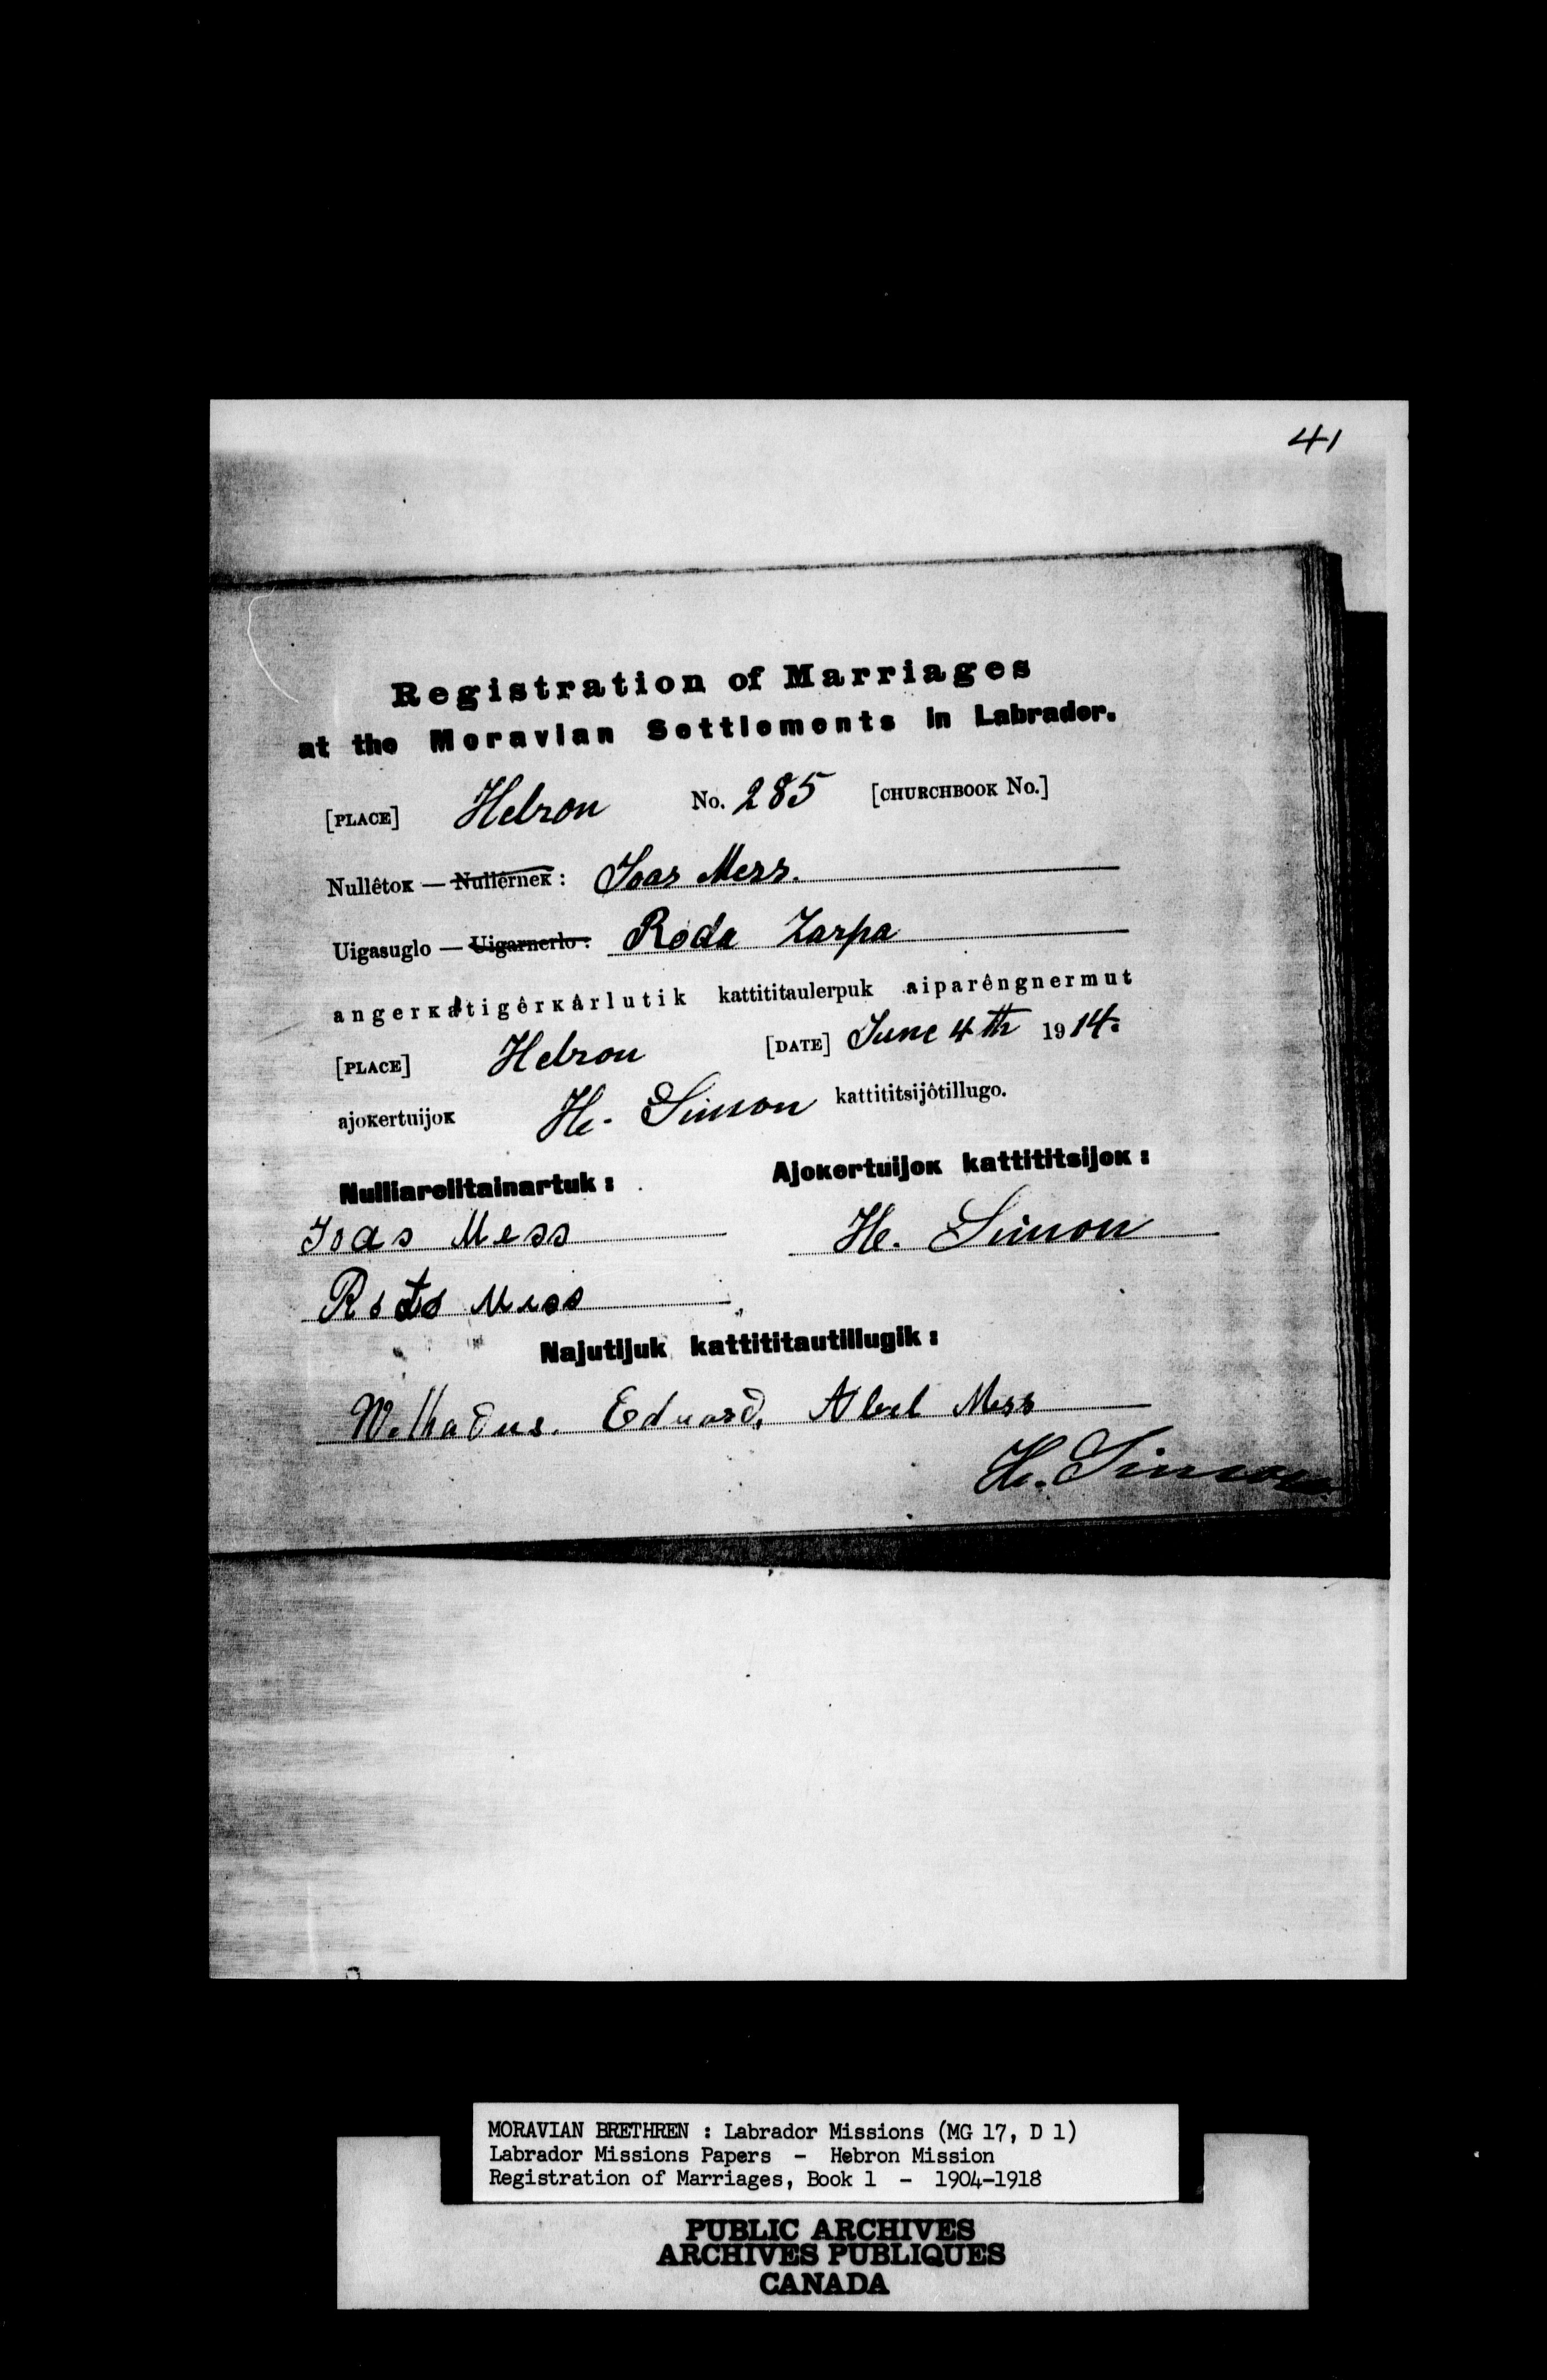 41
Registration of Marriages
at the Moravian Settlements in Labrador.
[PLACE] Hebron No. 285 [CHURCHBOOK No.]
Nullêtoĸ — Nullêrneĸ : Joas Mess.
Uigasuglo — Uigarnerlo : Roda Zarpa
angerĸatigêrĸârlutik kattititaulerpuk aiparêngnermut
[PLACE] Hebron [DATE] June 4th 1914.
ajoĸertuijoĸ H. Simon kattititsijôtillugo.
Nulliarelitainartuk : Ajoĸertuijoĸ kattititsijoĸ :
Joas Mess H. Simon
Mess
Najutijuk kattititautillugik :
Eduard, Abel Mess
H. Simon
MORAVIAN BRETHREN : Labrador Missions (MG 17, D 1)
Labrador Missions Papers - Hebron Mission
Registration of Marriages, Book 1 - 1904-1918
PUBLIC ARCHIVES
ARCHIVES PUBLIQUES
CANADA